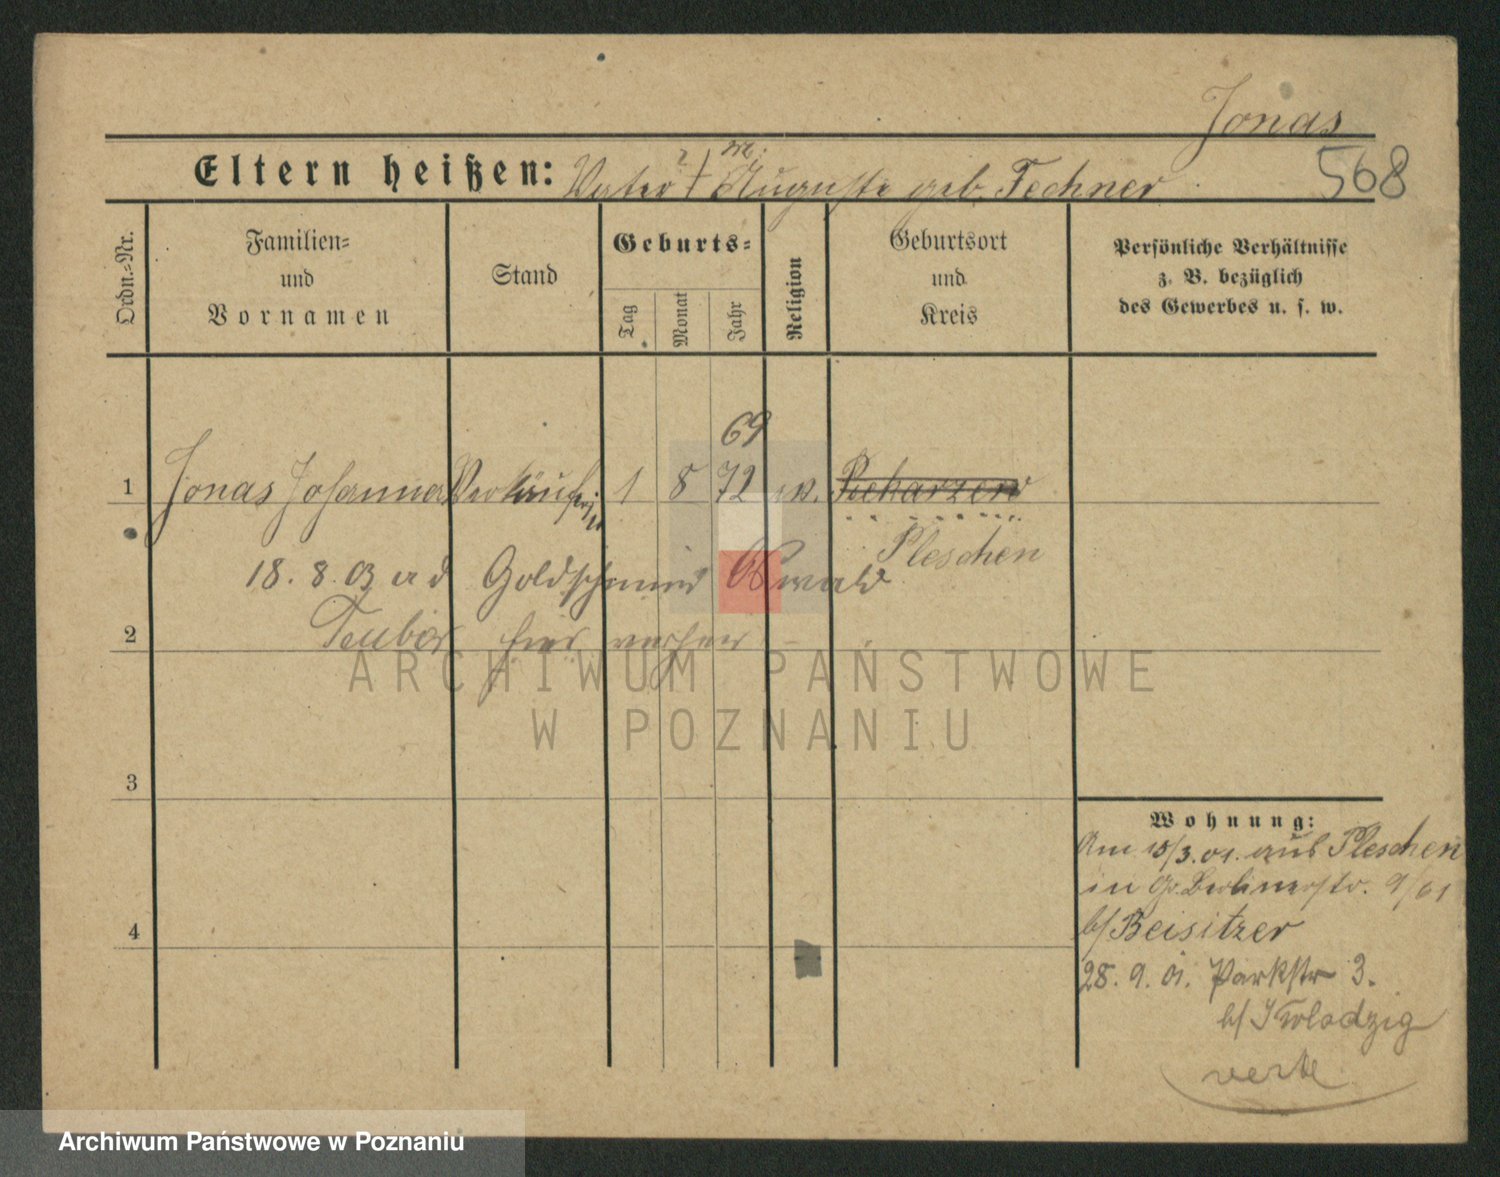 Jonas
568
Eltern heißen: Vater † M. Auguste geb. Fechner
Ordn.=Nr.
Familien=
und
Vornamen
Stand
Geburts=
Tag
Monat
Jahr
Religion
Geburtsort
und
Kreis
Persönliche Verhältnisse
z. B. bezüglich
des Gewerbes u. s. w.
69
1 Jonas Johanna Verkäuferin 1 8 72 ev.
Pleschen
18. 8. 03 Goldschmied Oswald
2 hier
ARCHIWUM PAŃSTWOWE
W POZNANIU
3
Wohnung:
Am 10/3.01. aus Pleschen
in Gr. Berlinerstr. 9/01
b/ Beisitzer
4
28. 9. 01. Parkstr 3.
b/
verte
Archiwum Państwowe w Poznaniu